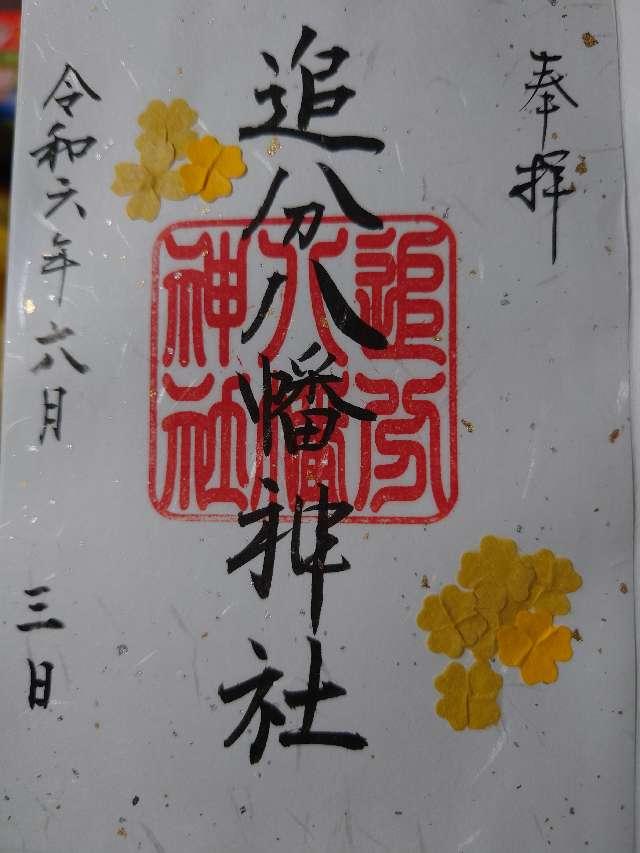 奉拝
追分八幡神社
追分八幡神社
令和六年六月三日